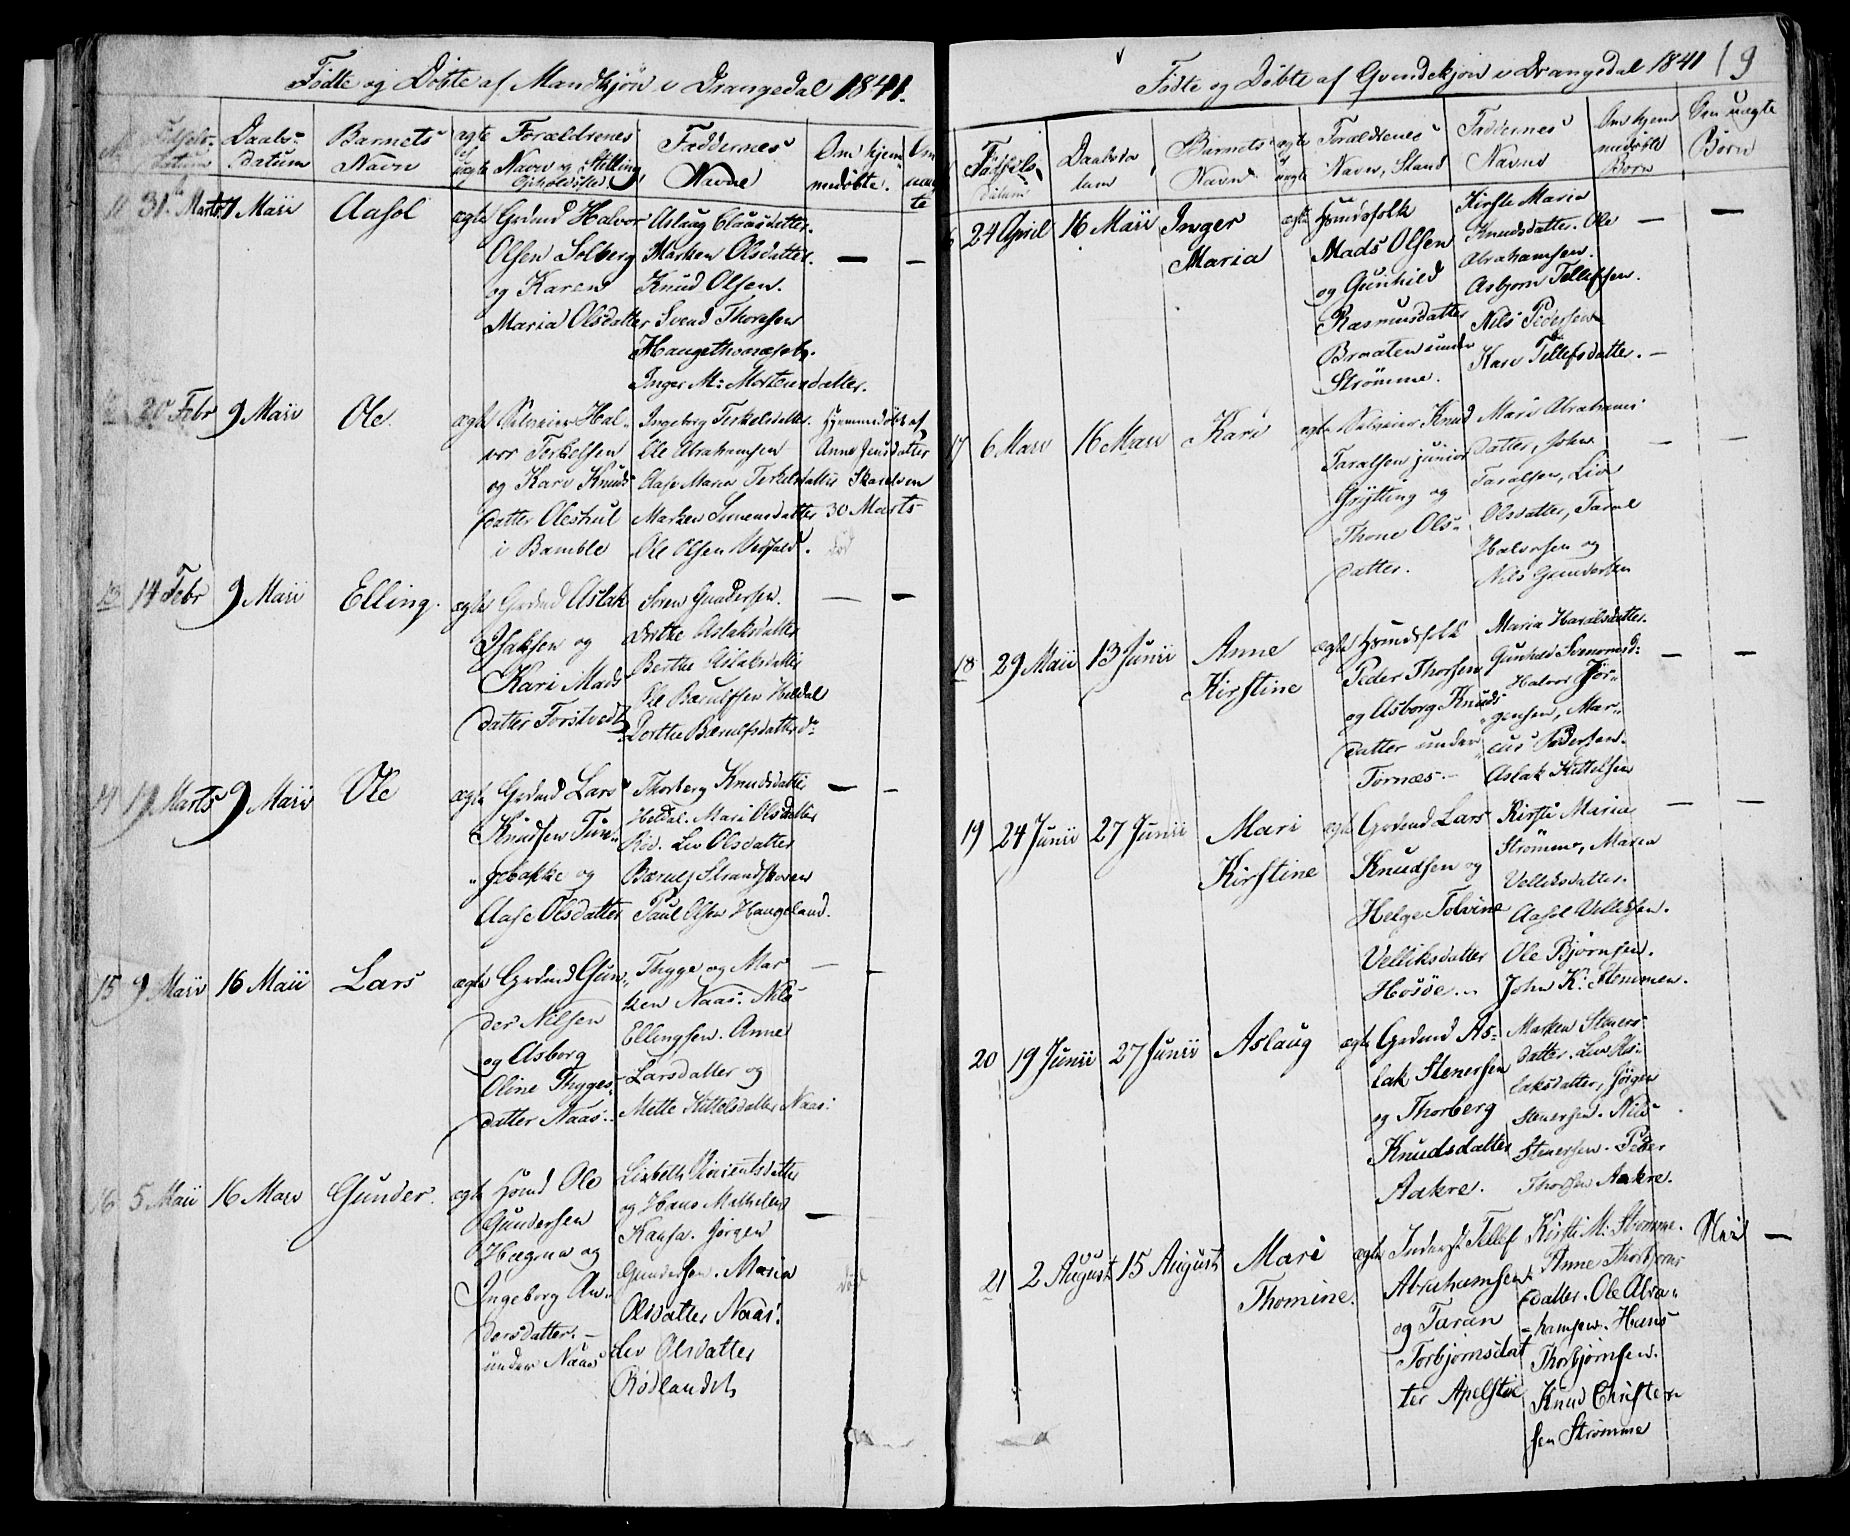 Fødte og Døbte af Mandkjøn i Drangedal 1841.
Fødsels-
datum
Daabs-
datum
Barnets
Navn
ægte
uægte
Forældrenes
Navn og Stilling,
Faddernes
Navne
Om hjem
medøbte.
Om
uæg
te
11 31 Marts 1 Maii Aasol ægte
Grdmd Halvor
Olsen Solberg
og Karen
Maria Olsdatter
Aslaug Claasdatter.
Marken Olsdatter.
Knud Olsen.
Svend Thoresen
Inger M: Mortensdatter.
— —
12 20 Febr 9 Maii Ole. ægte
Selveier Hal-
vor Terkelsen
og Kari Knuds
datter Oleshul
i Bamble
Ingeborg Terkelsdatter.
Ole Abrahamsen
Aase Maria Terkelsdatter
Marken Simensdatter
Ole Olsen
Hjemmedøbt af
Anne Jensdatter
30 Marts
død
13 14 Febr 9 Maii Elling. ægte
Grdmd Aslak
Isaksen og
Kari Mads
datter Torstvedt
Søren Gundersen.
Dorthe Aslaksdatter
Berthe Aslaksdatter
Ole Bærulfsen Heldal
Dorthe Bærulfsdatter do
— —
14 19 Marts 9 Maii Ole ægte
Grdmd Lars
Knudsen Tun-
gebakke og
Aase Olsdatter
Thorberg Knudsdatter
Heldal. Mari Olsdatter
Rød. Liv Olsdatter
Bærulf Strandskoven
Paul Olsen Haugeland.
— —
15 9 Maii 16 Maii Lars ægte
Grdmd Gun-
der Nilsen
og Asborg
Oline Thygges-
datter Naas.
Thygge og Mar
ken Naas. Nils
Ellingsen. Anne
Larsdatter og
Mette Kittelsdatter Naas.
— —
16 5 Maii 16 Maii Gunder. ægte
Hsmd Ole
Gundersen
Hægna og
Ingeborg An-
dersdatter. —
under Naas
Lisbeth Vincentsdatter
og Hans Mathesen
Kaasa. Jørgen
Gundersen. Maria
Olsdatter Naas.
Liv Olsdatter
Rødlandet
—
død
Fødte og Døbte af Qvindekjøn i Drangedal 1841 19
Fødsels-
datum
Daabsda
tum
Barnets
Navn
ægte
uægte
Forældrenes
Navn, Stand
Faddernes
Navne
Om hjem
medøbte
Børn
Om uægte
Børn
24 April 16 Maii Inger
Maria
ægte
Hsmdsfolk
Mads Olsen
og Gunhild
Rasmusdatter
Braaten under
Strømme.
Kirste Maria
Knudsdatter. Ole
Abrahamsen.
Asbjørn Tellefsen.
Nils Pedersen
Kari Tellefsdatter. —
— —
17 6 Maii 16 Maii Kari ægte
Selveier Knud
Taralsen junior
Grytting og
Thone Ols-
datter.
Mari Abrahams
datter, John
Taralsen, Liv
Olsdatter, Taral
Halvorsen og
Nils Gundersen
— —
18 29 Maii 13 Junii Anne
Kirstine
ægte
Hsmdsfolk
Peder Thorsen
og Asborg Knuds
datter under
Tornæs. —
Maria Haralsdatter.
Halvor Jør-
gensen, Mar-
cus Pedersen.
Aslak Kittelsen
— —
19 24 Junii 27 Junii Mari
Kirstine
ægte
Grdmd Lars
Knudsen og
Helge Tolvine
Velliksdatter
Høsøe.
Kirste Maria
Strømme, Maria
Velliksdatter.
Aasol Velliksen.
Ole Bjørnsen.
John K: Stemmen.
— —
20 19 Junii 27 Junii Aslaug ægte
Grdmd As-
lak Stenersen
og Thorberg
Knudsdatter
Aakre.
Marken Steners
datter. Liv As-
laksdatter, Jørgen
Stenersen. Nils
Stenersen. Peder
Thorsen Aakre.
21 2 August 15 August Mari
Thomine.
ægte
Inderst Tellef
Abrahamsen
og Taran
Torbjørnsdat
ter Apelstøe
Kirsti M: Strømme.
Anne Thorbjørns
datter. Ole Abra-
hamsen. Hans
Thorbjørnsen.
Knud Christen
sen Strømme
Nei —